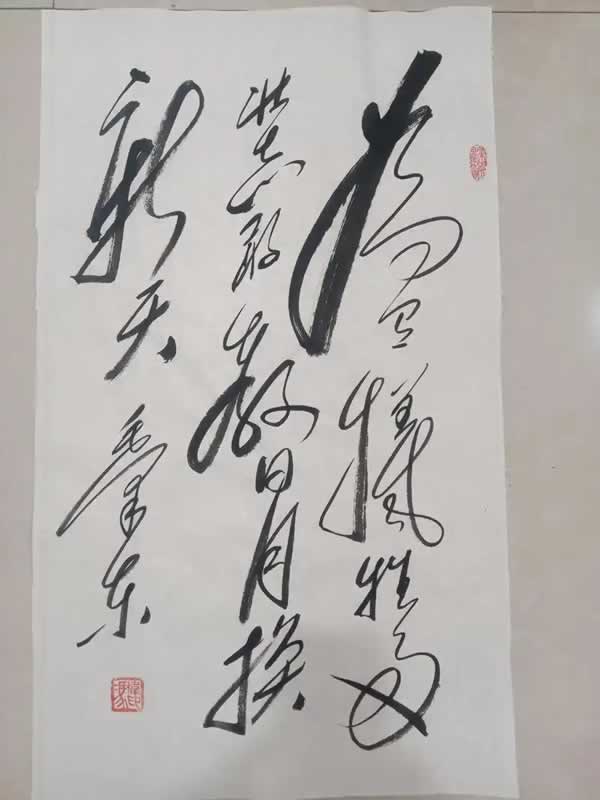 为有牺牲多
壮志敢教日月换
新天 毛泽东